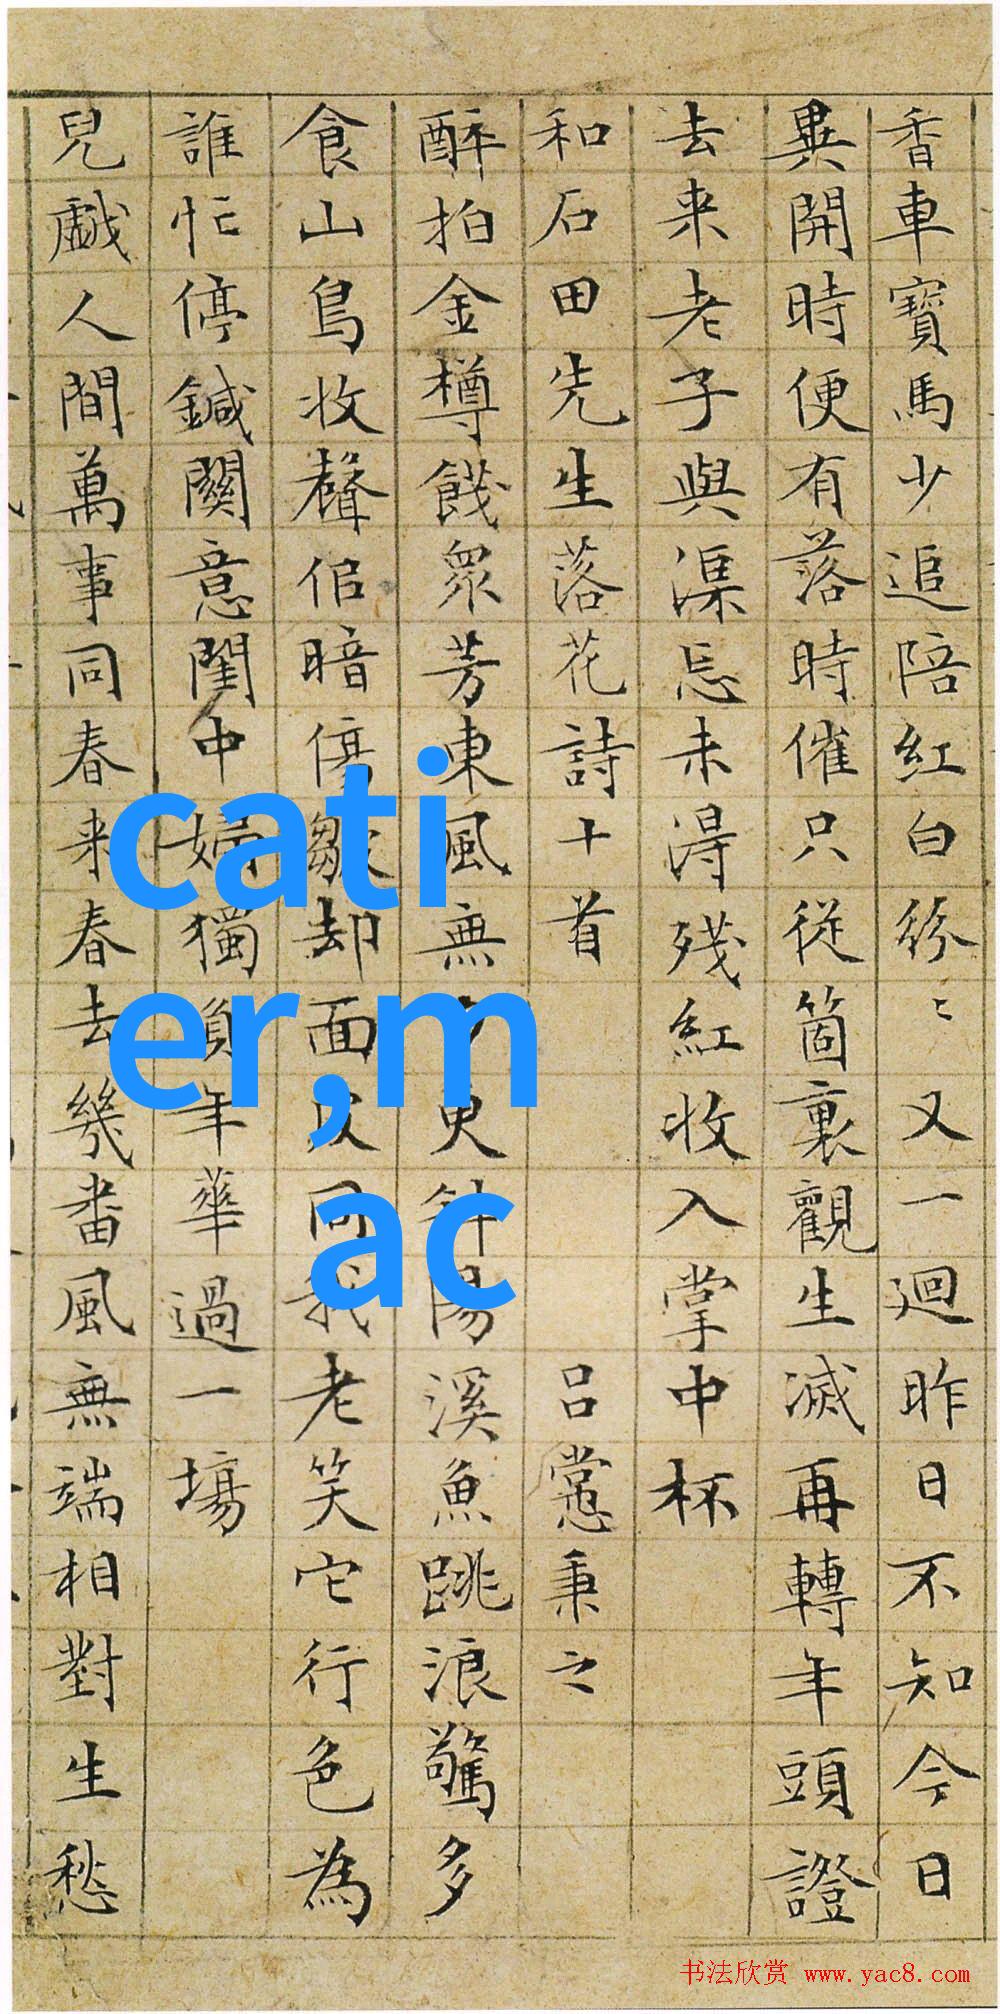 香車寶馬少追陪紅白紛〻又一迴昨日不知今日
異開時便有落時催只從箇裏觀生滅再轉年頭證
去来老子與渠忘未得殘紅收入掌中杯
和石田先生落花詩十首 吕㦂秉之
醉拍金樽餞眾芳東風無更斜陽溪魚跳浪驚多
食山鳥收聲倍暗傷皺却面皮同我老笑它行色為
誰忙停鍼關意閨中婦獨負年華過一場
兒戲人間萬事同春来春去幾番風無端相對生愁
cati
er,m
ac
书法欣赏 www.yac8.com